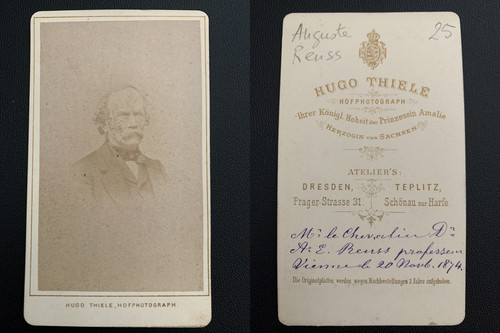 HUGO THIELE, HOFPHOTOGRAPH.
Auguste
Reuss
25
HUGO THIELE
HOFPHOTOGRAPH
Ihrer Königl. Hoheit der Prinzessin Amalie
HERZOGIN VON SACHSEN
ATELIER'S:
DRESDEN, TEPLITZ,
Prager-Strasse 31. Schönau zur Harfe
Mr le Chevalier Dr
A. E. Reuss professeur
Vienne le 20 Novb. 1874.
Die Originalplatten werden wegen Nachbestellungen 3 Jahre aufgehoben.